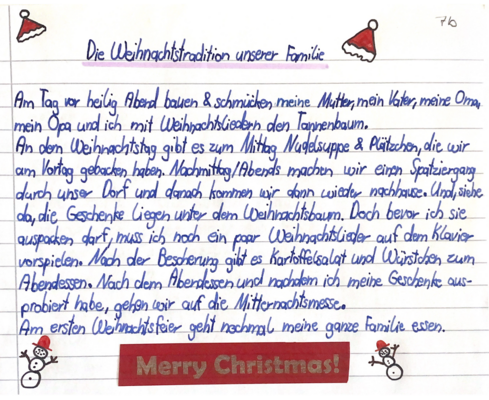 7b
Die Weihnachtstradition unserer Familie
Am Tag vor heilig Abend bauen & schmücken meine Mutter, mein Vater, meine Oma,
mein Opa und ich mit Weihnachtsliedern den Tannenbaum.
An dem Weihnachtstag gibt es zum Mittag Nudelsuppe & Plätzchen, die wir
am Vortag gebacken haben. Nachmittag/Abends machen wir einen Spatziergang
durch unser Dorf und danach kommen wir dann wieder nachhause. Und, siehe
da, die Geschenke Liegen unter dem Weihnachtsbaum. Doch bevor ich sie
auspacken darf, muss ich noch ein paar Weihnachtslieder auf dem Klavier
vorspielen. Nach der Bescherung gibt es Kartoffelsalat und Würstchen zum
Abendessen. Nach dem Abendessen und nachdem ich meine Geschenke aus-
probiert habe, gehen wir auf die Mitternachtsmesse.
Am ersten Weihnachtsfeier geht nochmal meine ganze Familie essen.
Merry Christmas!